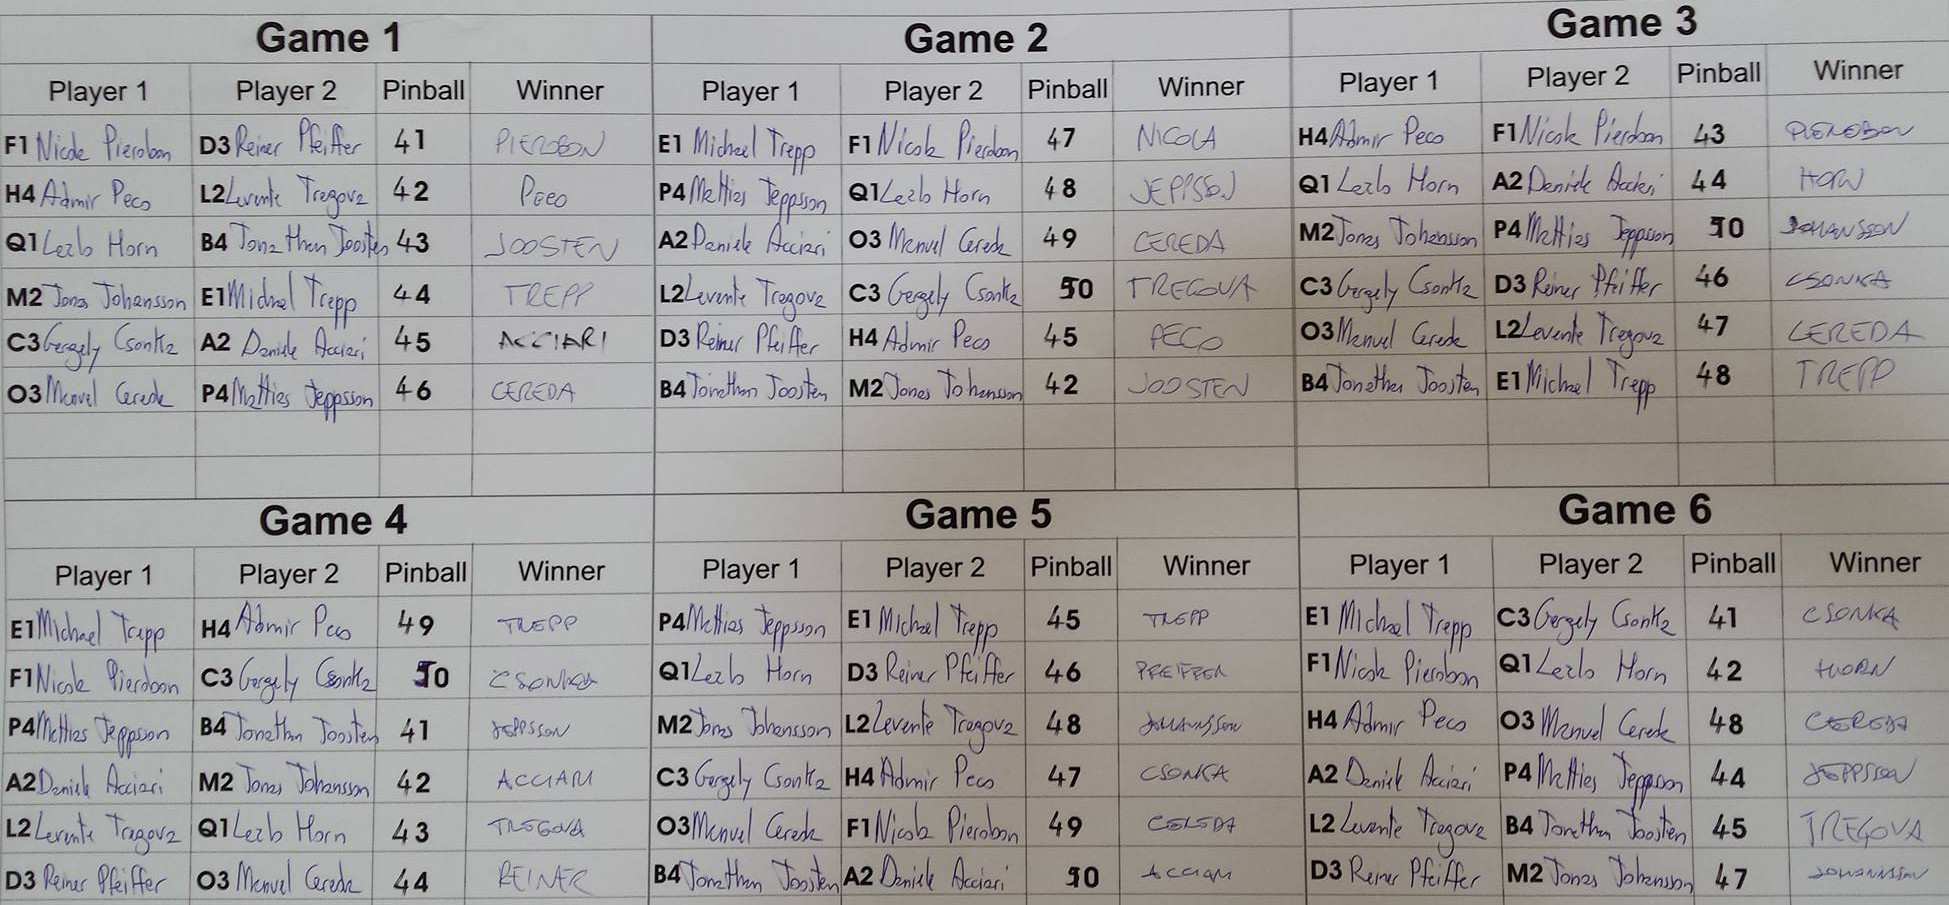 Game 1
Player 1 Player 2 Pinball Winner
F1 Nicola Pierobon D3 Reiner Pfeiffer 41 PIEROBON
H4 Admir Peco L2 Levente Tregova 42 PECO
Q1 Lezlo Horn B4 Jonathan Joosten 43 JOOSTEN
M2 Jonas Johansson E1 Michael Trepp 44 TREPP
C3 Gergely Csonka A2 Daniele Acciari 45 ACCIARI
O3 Manuel Cereda P4 Mattias Jeppsson 46 CEREDA
Game 2
Player 1 Player 2 Pinball Winner
E1 Michael Trepp F1 Nicola Pierobon 47 NICOLA
P4 Mattias Jeppsson Q1 Lezlo Horn 48 JEPPSSON
A2 Daniele Acciari O3 Manuel Cereda 49 CEREDA
L2 Levente Tregova C3 Gergely Csonka 50 TREGOVA
D3 Reiner Pfeiffer H4 Admir Peco 45 PECO
B4 Jonathan Joosten M2 Jonas Johansson 42 JOOSTEN
Game 3
Player 1 Player 2 Pinball Winner
H4 Admir Peco F1 Nicola Pierobon 43 PIEROBON
Q1 Lezlo Horn A2 Daniele Acciari 44 HORN
M2 Jonas Johansson P4 Mattias Jeppsson 50 JOHANSSON
C3 Gergely Csonka D3 Reiner Pfeiffer 46 CSONKA
O3 Manuel Cereda L2 Levente Tregova 47 CEREDA
B4 Jonathan Joosten E1 Michael Trepp 48 TREPP
Game 4
Player 1 Player 2 Pinball Winner
E1 Michael Trepp H4 Admir Peco 49 TREPP
F1 Nicola Pierobon C3 Gergely Csonka 50 CSONKA
P4 Mattias Jeppsson B4 Jonathan Joosten 41 JEPPSSON
A2 Daniele Acciari M2 Jonas Johansson 42 ACCIARI
L2 Levente Tregova Q1 Lezlo Horn 43 TREGOVA
D3 Reiner Pfeiffer O3 Manuel Cereda 44 REINER
Game 5
Player 1 Player 2 Pinball Winner
P4 Mattias Jeppsson E1 Michael Trepp 45 TREPP
Q1 Lezlo Horn D3 Reiner Pfeiffer 46 PFEIFFER
M2 Jonas Johansson L2 Levente Tregova 48 JOHANSSON
C3 Gergely Csonka H4 Admir Peco 47 CSONKA
O3 Manuel Cereda F1 Nicola Pierobon 49 CEREDA
B4 Jonathan Joosten A2 Daniele Acciari 50 ACCIARI
Game 6
Player 1 Player 2 Pinball Winner
E1 Michael Trepp C3 Gergely Csonka 41 CSONKA
F1 Nicola Pierobon Q1 Lezlo Horn 42 HORN
H4 Admir Peco O3 Manuel Cereda 48 CEREDA
A2 Daniele Acciari P4 Mattias Jeppsson 44 JEPPSSON
L2 Levente Tregova B4 Jonathan Joosten 45 TREGOVA
D3 Reiner Pfeiffer M2 Jonas Johansson 47 JOHANSSON